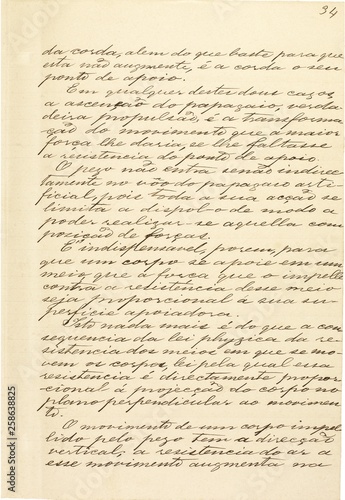 34
da corda, alem do que baste para que
esta não augmente, é a corda o seu
ponto de apoio.
Em qualquer destes dous casos,
a ascenção do papagaio, verda-
deira propulsão, é a transforma-
ção do movimento que a maior
força lhe daria, se lhe faltasse
a resistencia do ponto de apoio.
O pezo não entra senão indirec-
tamente no vôo do papagaio arti-
ficial, pois toda a sua acção se
limita a dispol-o de modo a
poder realizar-se aquella com-
posição de forças.
E' indispensavel, porem, para
que um corpo se apoie em um
meio, que a força que o impelle
contra a resistencia desse meio
seja proporcional á sua su-
perficie apoiadora.
Isto nada mais é do que a con-
sequencia da lei physica da re-
sistencia dos meios em que se mo-
vem os corpos, lei pela qual essa
resistencia é directamente propor-
cional a projecção do corpo no
plano perpendicular ao movimen-
to.
O movimento de um corpo impel-
lido pelo pezo tem a direcção
vertical; a resistencia do ar a
esse movimento augmenta na
Adobe Stock | #258638825